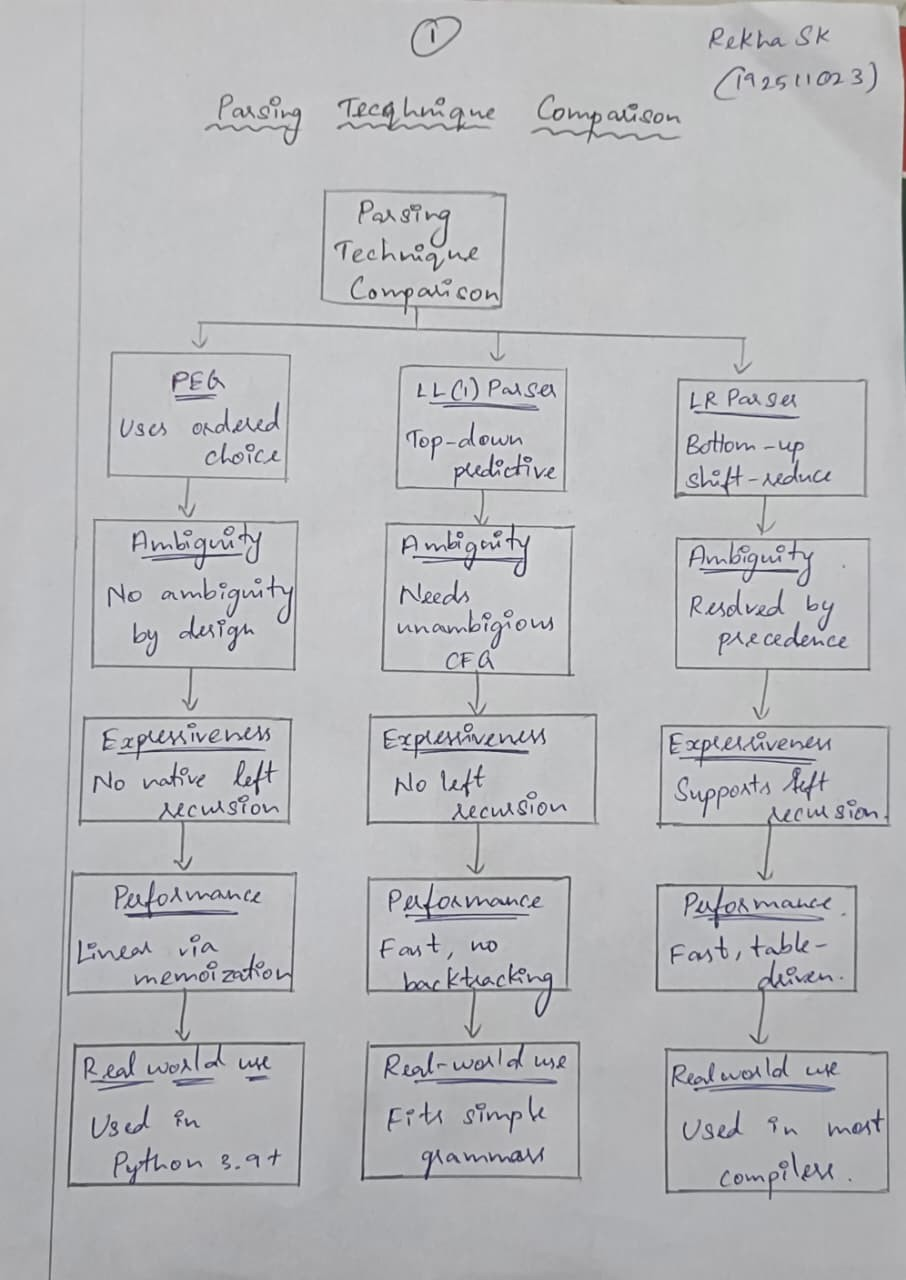 1
Rekha SK
(192511023)
Parsing Tecqhnique Comparison
Parsing
Technique
Comparison
PEG
Uses ordered
choice
Ambiguity
No ambiguity
by design
Expressiveness
No native left
recursion
Performance
Linear via
memoization
Real world use
Used in
Python 3.9+
LL(1) Parser
Top-down
predictive
Ambiguity
Needs
unambigious
CFG
Expressiveness
No left
recursion
Performance
Fast, no
backtracking
Real-world use
Fits simple
grammars
LR Parser
Bottom-up
shift-reduce
Ambiguity
Resolved by
precedence
Expressiveness
Supports left
recursion.
Performance.
Fast, table-
driven.
Real world use
Used in most
compilers.